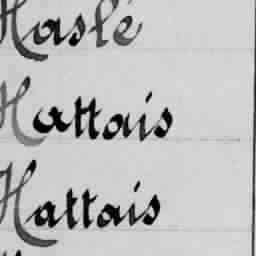 Haslé
Hattais
Hattais